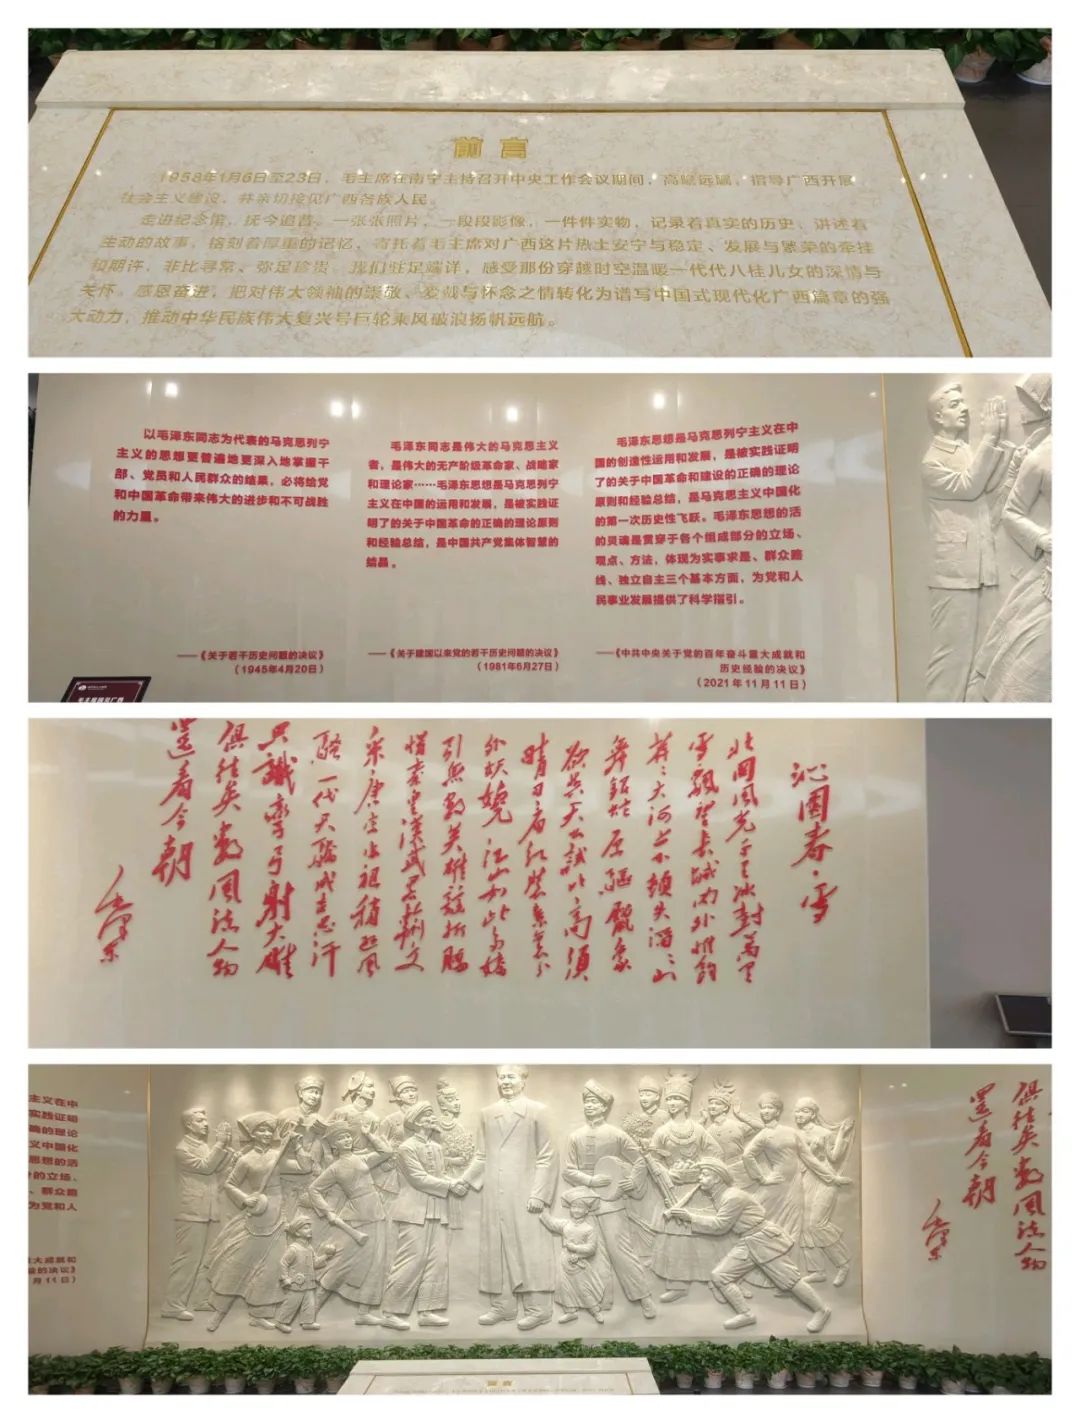 前言
1958年1月6日至23日，毛主席在南宁主持召开中央工作会议期间，高瞻远瞩，指导广西开展
社会主义建设，并亲切接见广西各族人民。
走进纪念馆，抚今追昔。一张张照片，一段段影像，一件件实物，记录着真实的历史、讲述着
生动的故事、铭刻着厚重的记忆，寄托着毛主席对广西这片热土安宁与稳定、发展与繁荣的牵挂
和期许，非比寻常、弥足珍贵。我们驻足端详，感受那份穿越时空温暖一代代八桂儿女的深情与
关怀。感恩奋进，把对伟大领袖的崇敬、爱戴与怀念之情转化为谱写中国式现代化广西篇章的强
大动力，推动中华民族伟大复兴号巨轮乘风破浪扬帆远航。
以毛泽东同志为代表的马克思列宁
主义的思想更普遍地更深入地掌握干
部、党员和人民群众的结果，必将给党
和中国革命带来伟大的进步和不可战胜
的力量。
——《关于若干历史问题的决议》
（1945年4月20日）
毛泽东同志是伟大的马克思主义
者，是伟大的无产阶级革命家、战略家
和理论家……毛泽东思想是马克思列宁
主义在中国的运用和发展，是被实践证
明了的关于中国革命的正确的理论原则
和经验总结，是中国共产党集体智慧的
结晶。
——《关于建国以来党的若干历史问题的决议》
（1981年6月27日）
毛泽东思想是马克思列宁主义在中
国的创造性运用和发展，是被实践证明
了的关于中国革命和建设的正确的理论
原则和经验总结，是马克思主义中国化
的第一次历史性飞跃。毛泽东思想的活
的灵魂是贯穿于各个组成部分的立场、
观点、方法，体现为实事求是、群众路
线、独立自主三个基本方面，为党和人
民事业发展提供了科学指引。
——《中共中央关于党的百年奋斗重大成就和
历史经验的决议》
（2021年11月11日）
沁园春·雪
北国风光千里冰封万里
雪飘望长城内外惟馀
莽莽大河上下顿失滔滔山
舞银蛇原驱腊象
欲与天公试比高须
晴日看红装素裹分
外妖娆江山如此多娇
引无数英雄竞折腰
惜秦皇汉武略输文
采唐宗宋祖稍逊风
骚一代天骄成吉思汗
只识弯弓射大雕
俱往矣数风流人物
还看今朝
毛泽东
主义在中
实践证明
确的理论
义中国化
思想的活
的立场、
、群众路
为党和人
大成就和
验的决议》
月11日）
俱往矣数风流人物
还看今朝
毛泽东
前言